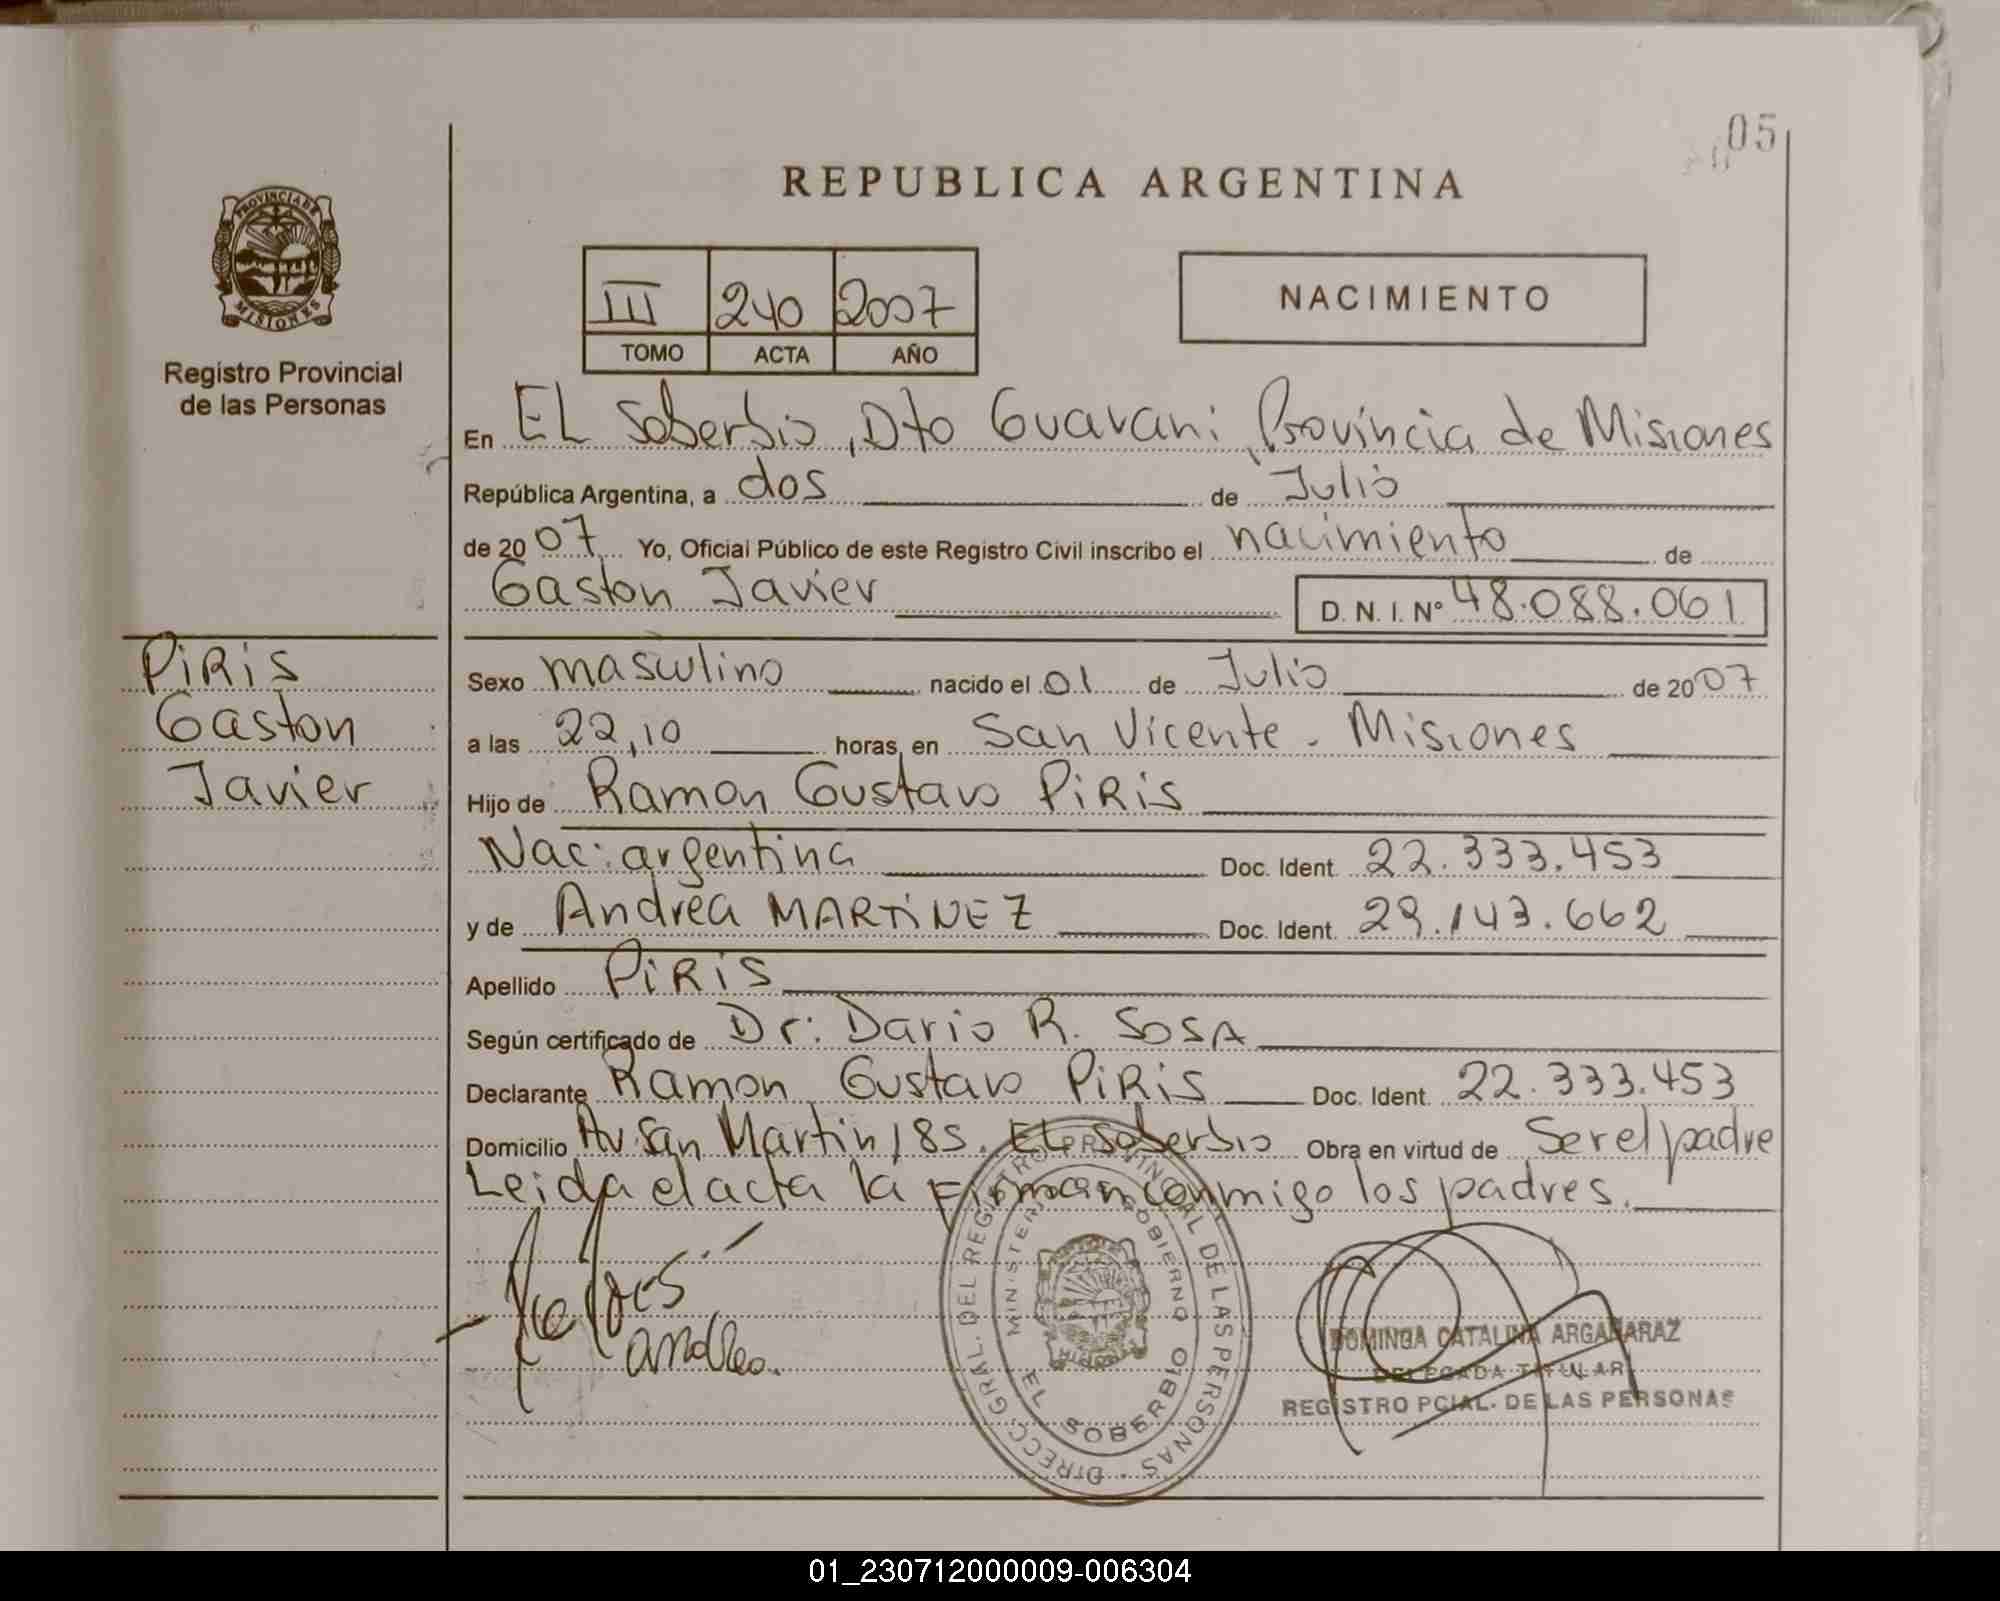 05
REPUBLICA ARGENTINA
PROVINCIA DE
MISIONES
Registro Provincial
de las Personas
III 240 2007
TOMO ACTA AÑO
NACIMIENTO
En EL Soberbio, Dto Guarani, Provincia de Misiones
República Argentina, a dos de Julio
de 2007 Yo, Oficial Público de este Registro Civil inscribo el nacimiento de
Gaston Javier D. N. I. Nº 48.088.061
PiRiS
Gaston
Javier
Sexo masculino nacido el 01 de Julio de 2007
a las 22,10 horas, en San Vicente - Misiones
Hijo de Ramon Gustavo PiRiS
Nac: argentina Doc. Ident. 22.333.453
y de Andrea MARTiNEZ Doc. Ident. 29.143.662
Apellido PiRiS
Según certificado de Dr: Dario R. SOSA
Declarante Ramon Gustavo PiRiS Doc. Ident. 22.333.453
Domicilio Av. San Martin 185. EL Soberbio Obra en virtud de Ser el padre
Leida el acta la Firman conmigo los padres.
andrea.
DIRECC. GRAL. DEL REGISTRO PROVINCIAL DE LAS PERSONAS
MINISTERIO DE GOBIERNO
EL SOBERBIO
DOMINGA CATALINA ARGAÑARAZ
DELEGADA TITULAR
REGISTRO PCIAL. DE LAS PERSONAS
01_230712000009-006304